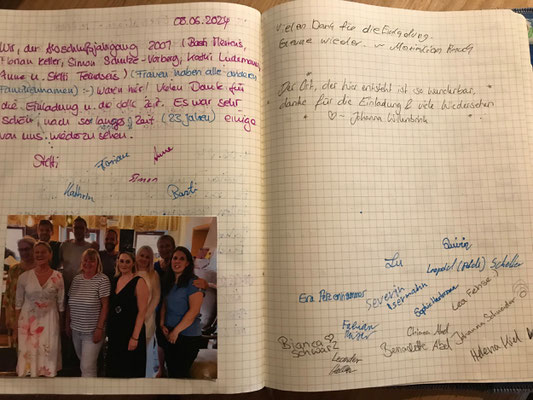 08.06.2024
Wir, der Abschlußjahrgang 2001 (Basti
Florian Keller, Simon Schulze-Varberg, Kathi
Anne u. Steffi (Frauen haben alle anderen
Familiennamen) :-) waren hier! Vielen Dank für
die Einladung u. die tolle Zeit. Es war sehr
schön, nach so langer Zeit (23 Jahren) einige
von uns wiederzusehen.
Steffi
Floriane
Anne
Simon
Kathrin
Basti
Vielen Dank für die Einladung.
Gerne wieder. ~ Maximilian
Der Ort, der hier entsteht ist so wunderbar,
danke für die Einladung & viele Wiedersehen
♡~ Johanna
Lu
Quirin
Leopold (Poldi) Scheller
Eva
Severin
Sophie
Lea
Fabian
Chiara Abel
Bianca ♡
Schwarz
Bernadette Abel
Johanna Schneider
Leander
Helena